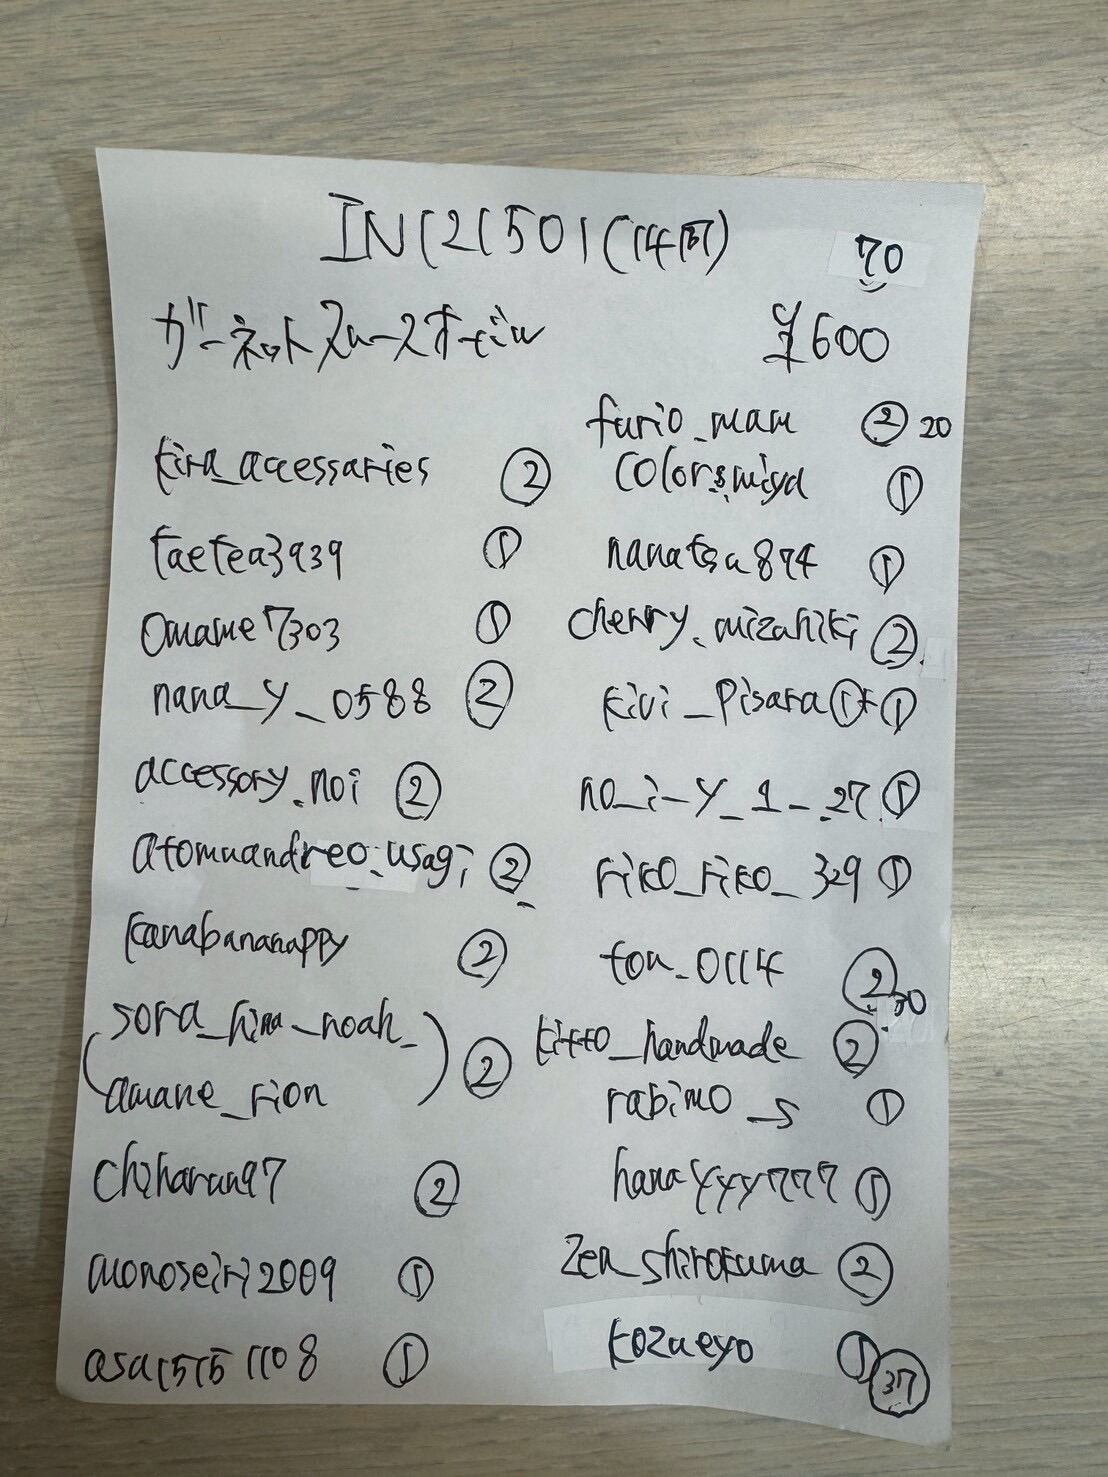 IN121501(14時)
70
ガーネットスムースオーバル
¥600
kira_accessaries ②
taetea3939 ①
omame7303 ①
nana_y_0588 ②
accessory.noi ②
atomuandreo.usagi ②
kanabananappy ②
(sora_hina_noah_
amane_rion) ②
chiharun97 ②
monoseiri2009 ①
asa15151108 ①
furio_mam ② 20
colors.miya ①
nanatsu874 ①
cherry.mizuhiki ②
kivi_pisara ①+①
no_i_y_1_.27 ①
riko_riko_329 ①
tou_0114 ② 30
kitto_handmade ②
rabimo_s ①
hanayyy777 ①
zen_shirokuma ②
kozueyo ①
37